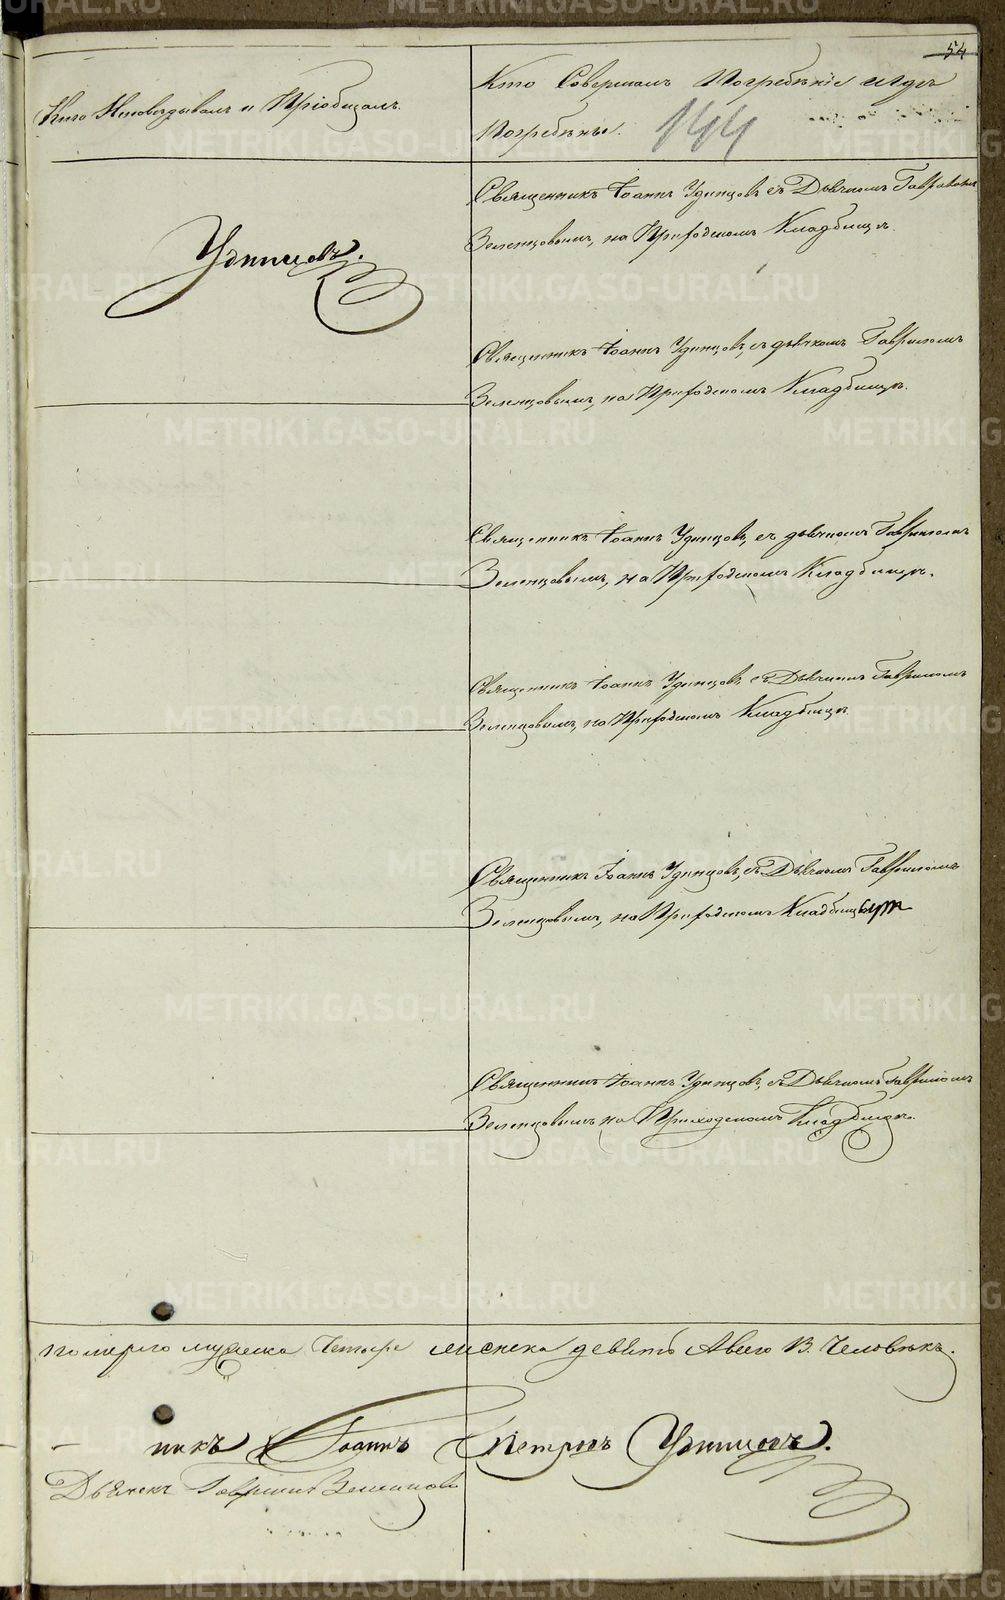 54
Кто Исповѣдывалъ и Пріобщалъ.
Кто Совершалъ Погребѣніе и гдѣ
Погребѣны.
144
Удинцовъ.
Священникъ Іоаннъ Удинцовъ съ Дьячкомъ Гавриломъ
Зеленцовымъ, на Приходскомъ Кладбищѣ.
Священникъ Іоаннъ Удинцовъ, съ дьячкомъ Гавриломъ
Зеленцовымъ, на Приходскомъ Кладбищѣ.
Священникъ Іоаннъ Удинцовъ, съ дьячкомъ Гавриломъ
Зеленцовымъ, на Приходскомъ Кладбищѣ.
Священникъ Іоаннъ Удинцовъ съ Дьячкомъ Гавриломъ
Зеленцовымъ, на Приходскомъ Кладбищѣ.
Священникъ Іоаннъ Удинцовъ, съ Дьячкомъ Гавриломъ
Зеленцовымъ, на Приходскомъ Кладбищѣ
Священникъ Іоаннъ Удинцовъ, съ Дьячкомъ Гавриломъ
Зеленцовымъ на Приходскомъ Кладбищѣ.
полу девять Авсего В. Человѣкъ.
никъ Іоаннъ Петровъ Удинцовъ.
Дьячекъ Гаврилъ Зеленцовъ
METRIKI.GASO-URAL.RU